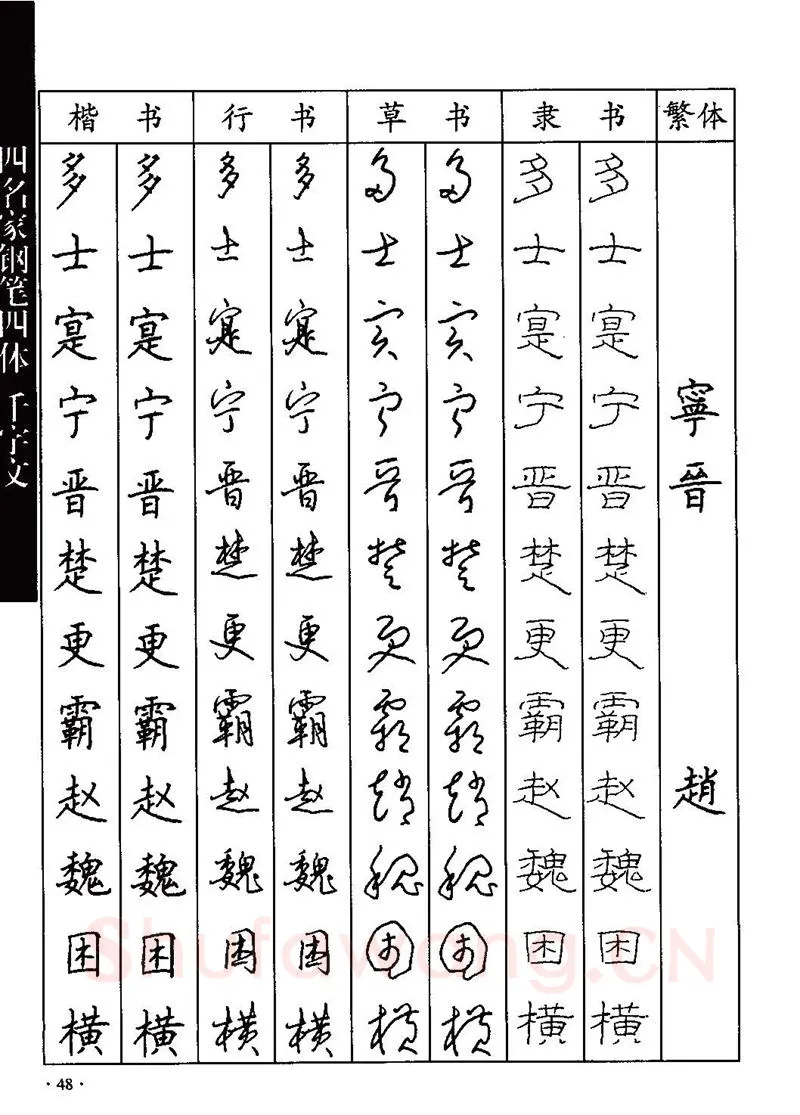 四名家钢笔四体 千字文
楷书 行书 草书 隶书 繁体
多 多 多 多 多 多 多 多
士 士 士 士 士 士 士 士
寔 寔 寔 寔 寔 寔 寔 寔
宁 宁 宁 宁 宁 宁 宁 宁 寧
晋 晋 晋 晋 晋 晋 晋 晋 晉
楚 楚 楚 楚 楚 楚 楚 楚
更 更 更 更 更 更 更 更
霸 霸 霸 霸 霸 霸 霸 霸
赵 赵 赵 赵 趙 趙 赵 赵 趙
魏 魏 魏 魏 魏 魏 魏 魏
困 困 困 困 困 困 困 困
横 横 横 横 横 横 横 横
Shufawang.CN
·48·